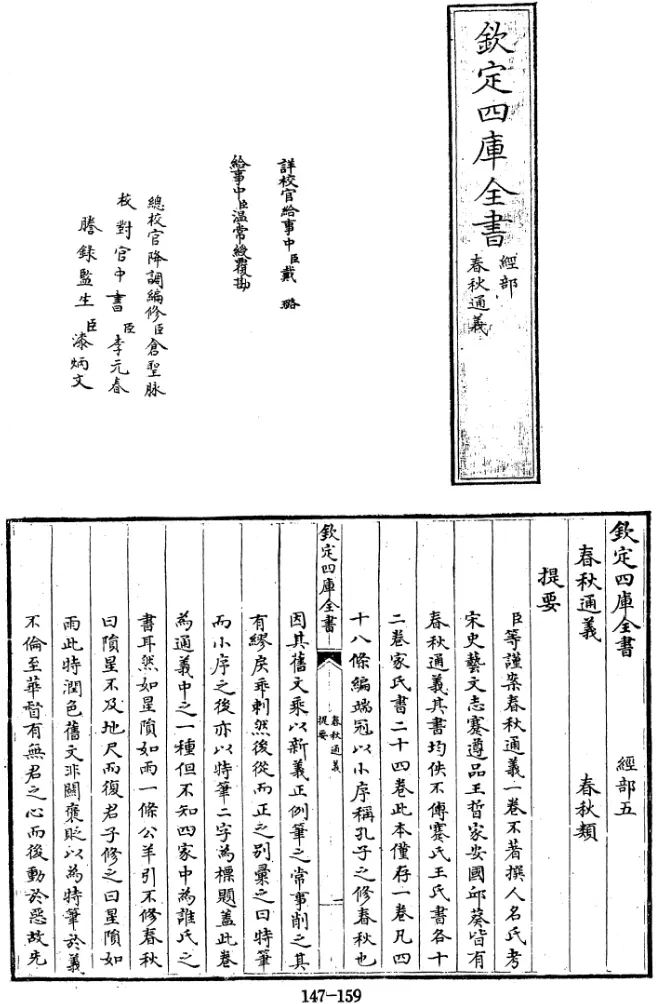 欽定四庫全書
經部
春秋通義
詳校官給事中臣戴璐
給事中臣溫常綬覆勘
總校官降調編修臣倉聖脉
校對官中書臣李元春
謄錄監生臣漆炳文
欽定四庫全書 經部五
春秋通義 春秋類
提要
臣等謹案春秋通義一卷不著撰人名氏考
宋史藝文志蹇遵品王晳家安國邱葵皆有
春秋通義其書均佚不傳蹇氏王氏書各十
二卷家氏書二十四卷此本僅存一卷凡四
十八條編端冠以小序稱孔子之修春秋也
欽定四庫全書
春秋通義
提要
一
因其舊文乘以新義正例筆之常事削之其
有繆戾乖剌然後從而正之別彙之曰特筆
而小序之後亦以特筆二字為標題蓋此卷
為通義中之一種但不知四家中為誰氏之
書耳然如星隕如雨一條公羊引不修春秋
曰隕星不及地尺而復君子修之曰星隕如
雨此特潤色舊文非關褒貶以為特筆於義
不倫至華督有無君之心而後動於惡故先
147-159